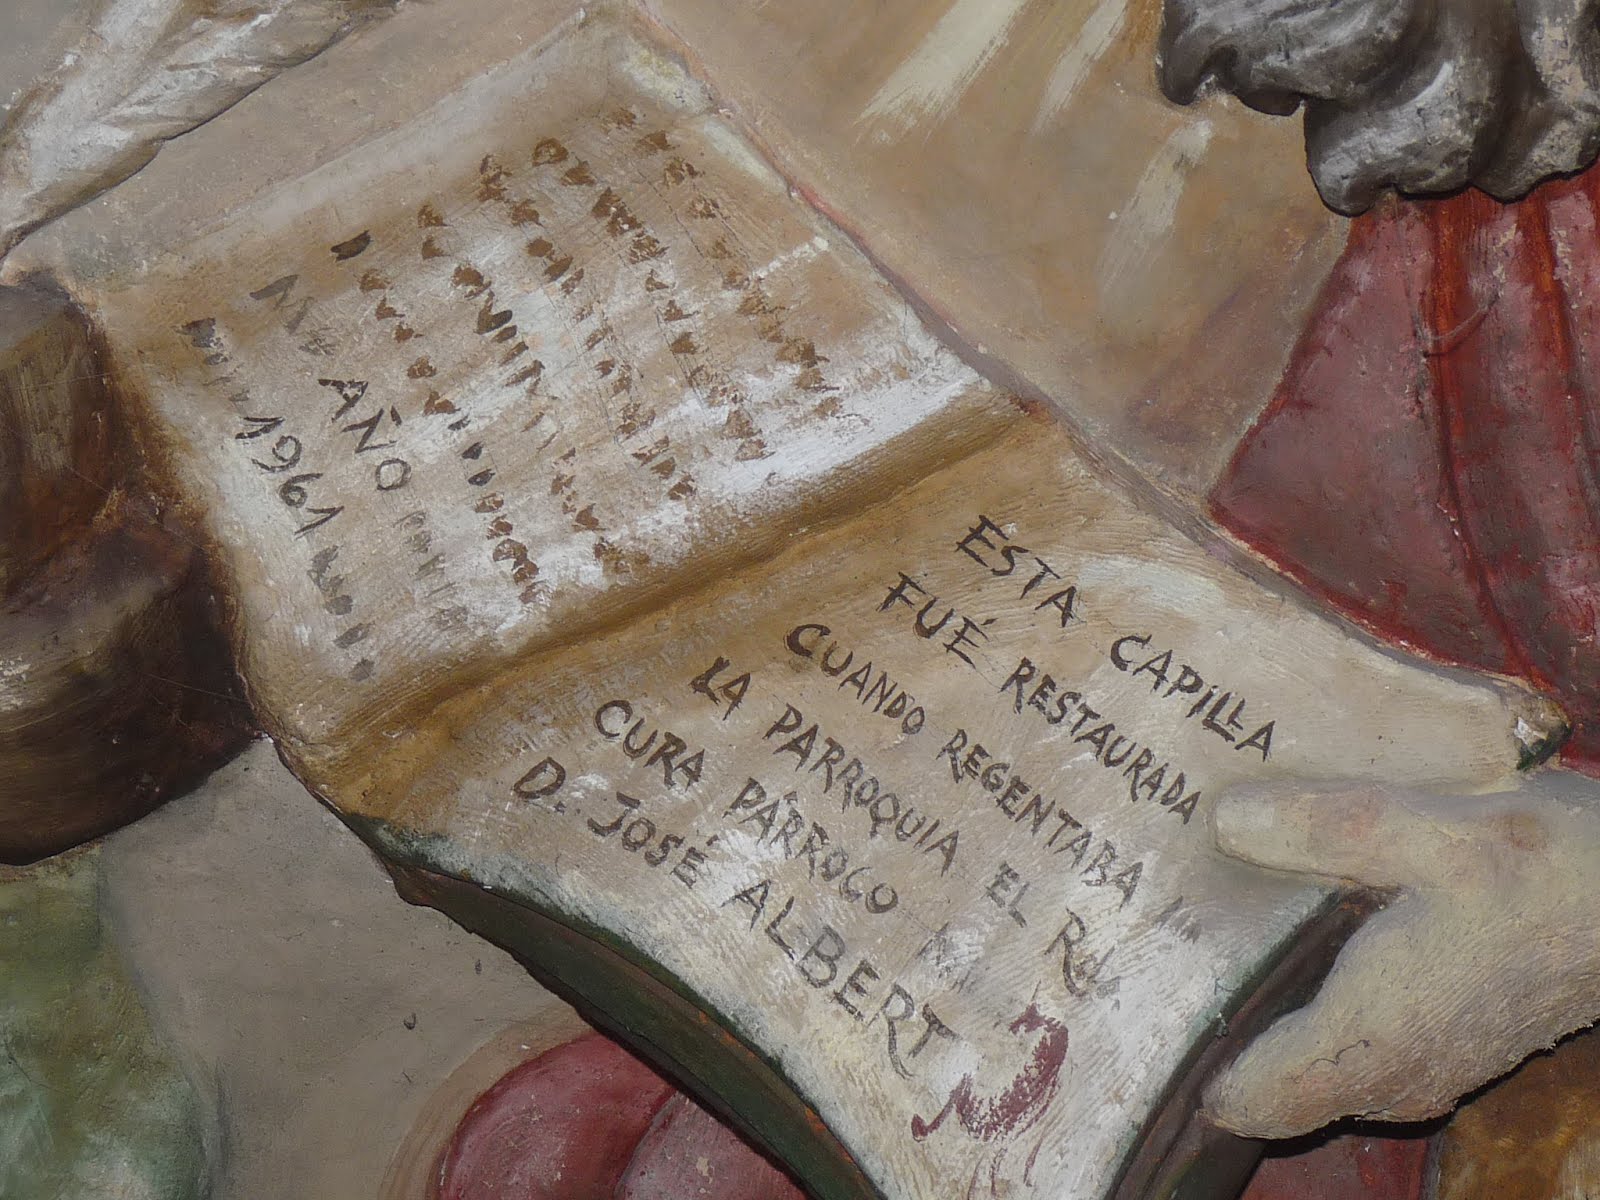 AÑO
1961
ESTA CAPILLA
FUÉ RESTAURADA
CUANDO REGENTABA
LA PARROQUIA EL
CURA PÁRROCO
D. JOSÉ ALBERT